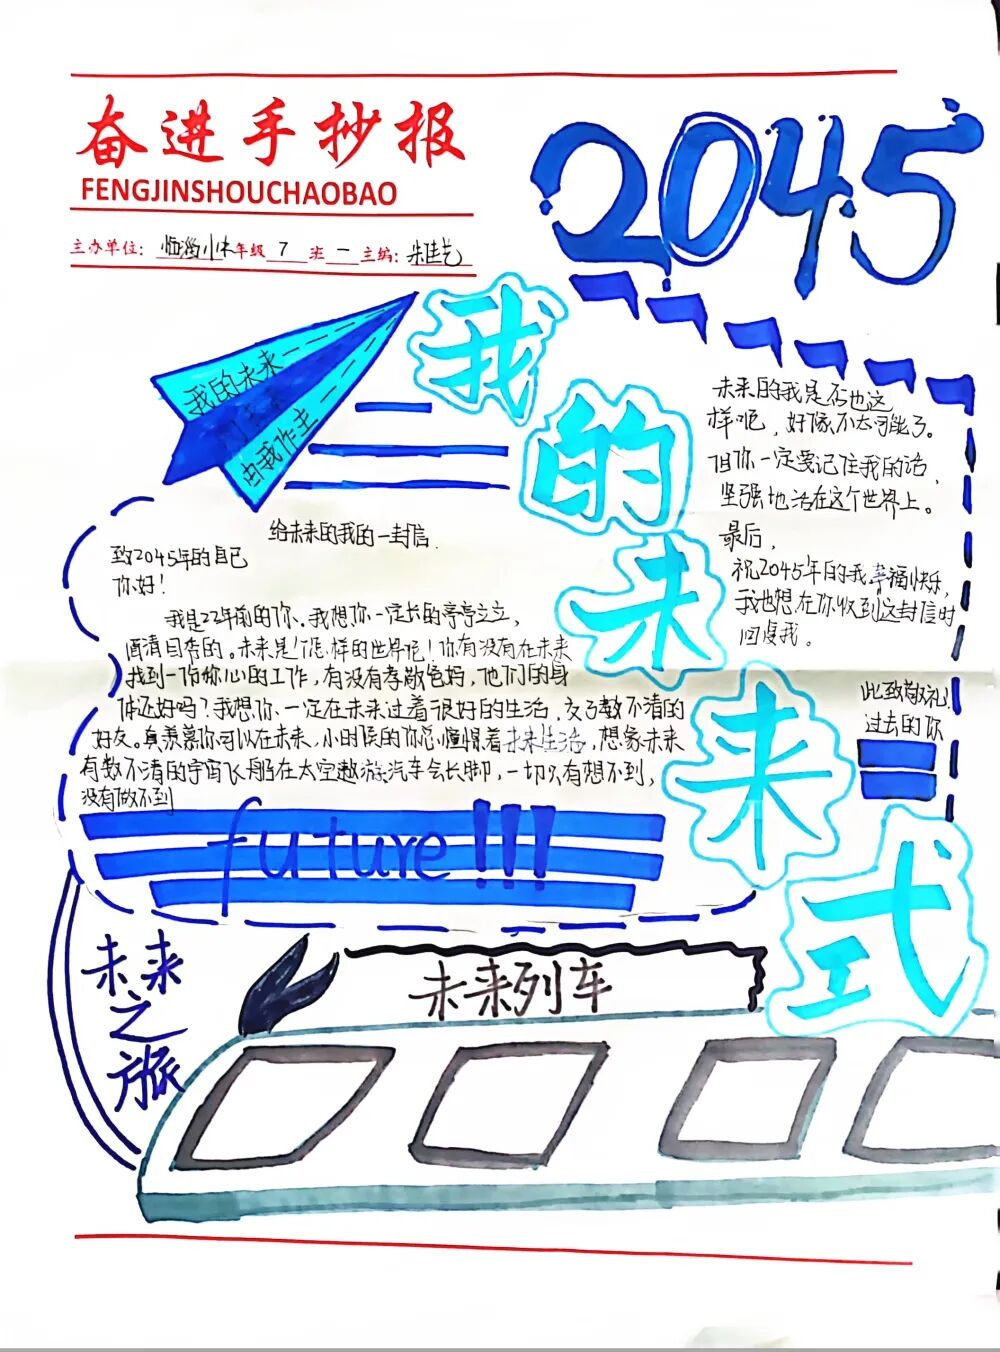 奋进手抄报
FENGJINSHOUCHAOBAO
主办单位: 临淄小木年级 7 班 一 主编: 朱佳艺
2045
我的未来式
我的未来
由我作主
给未来的我的一封信
致2045年的自己
你好!
我是22年前的你、我想你一定长的亭亭立立,
眉清目秀的。未来是个怎样的世界呢!你有没有在未来
找到一份称心的工作,有没有孝敬爸妈,他们的身
体还好吗?我想你一定在未来过着很好的生活,交了数不清的
好友。真羡慕你可以在未来,小时候的你总憧憬着未来生活,想象未来
有数不清的宇宙飞船在太空遨游汽车会长脚,一切只有想不到,
没有做不到
future!!!
未来的我是否也这
样吧,好像不太可能了。
但你一定要记住我的话,
坚强地活在这个世界上。
最后,
祝2045年的我幸福快乐,
我也想在你收到这封信时
回复我。
此致敬礼!
过去的你
未来之旅
未来列车